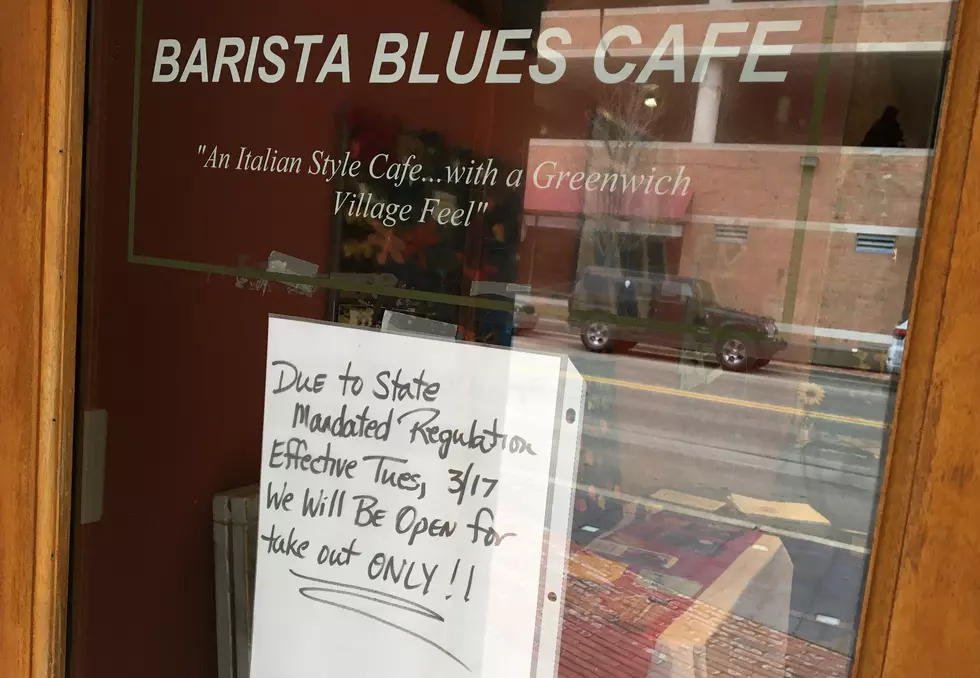 BARISTA BLUES CAFE
"An Italian Style Cafe...with a Greenwich
Village Feel"
Due to State
Mandated Regulation
Effective Tues, 3/17
We Will Be Open for
take out ONLY!!